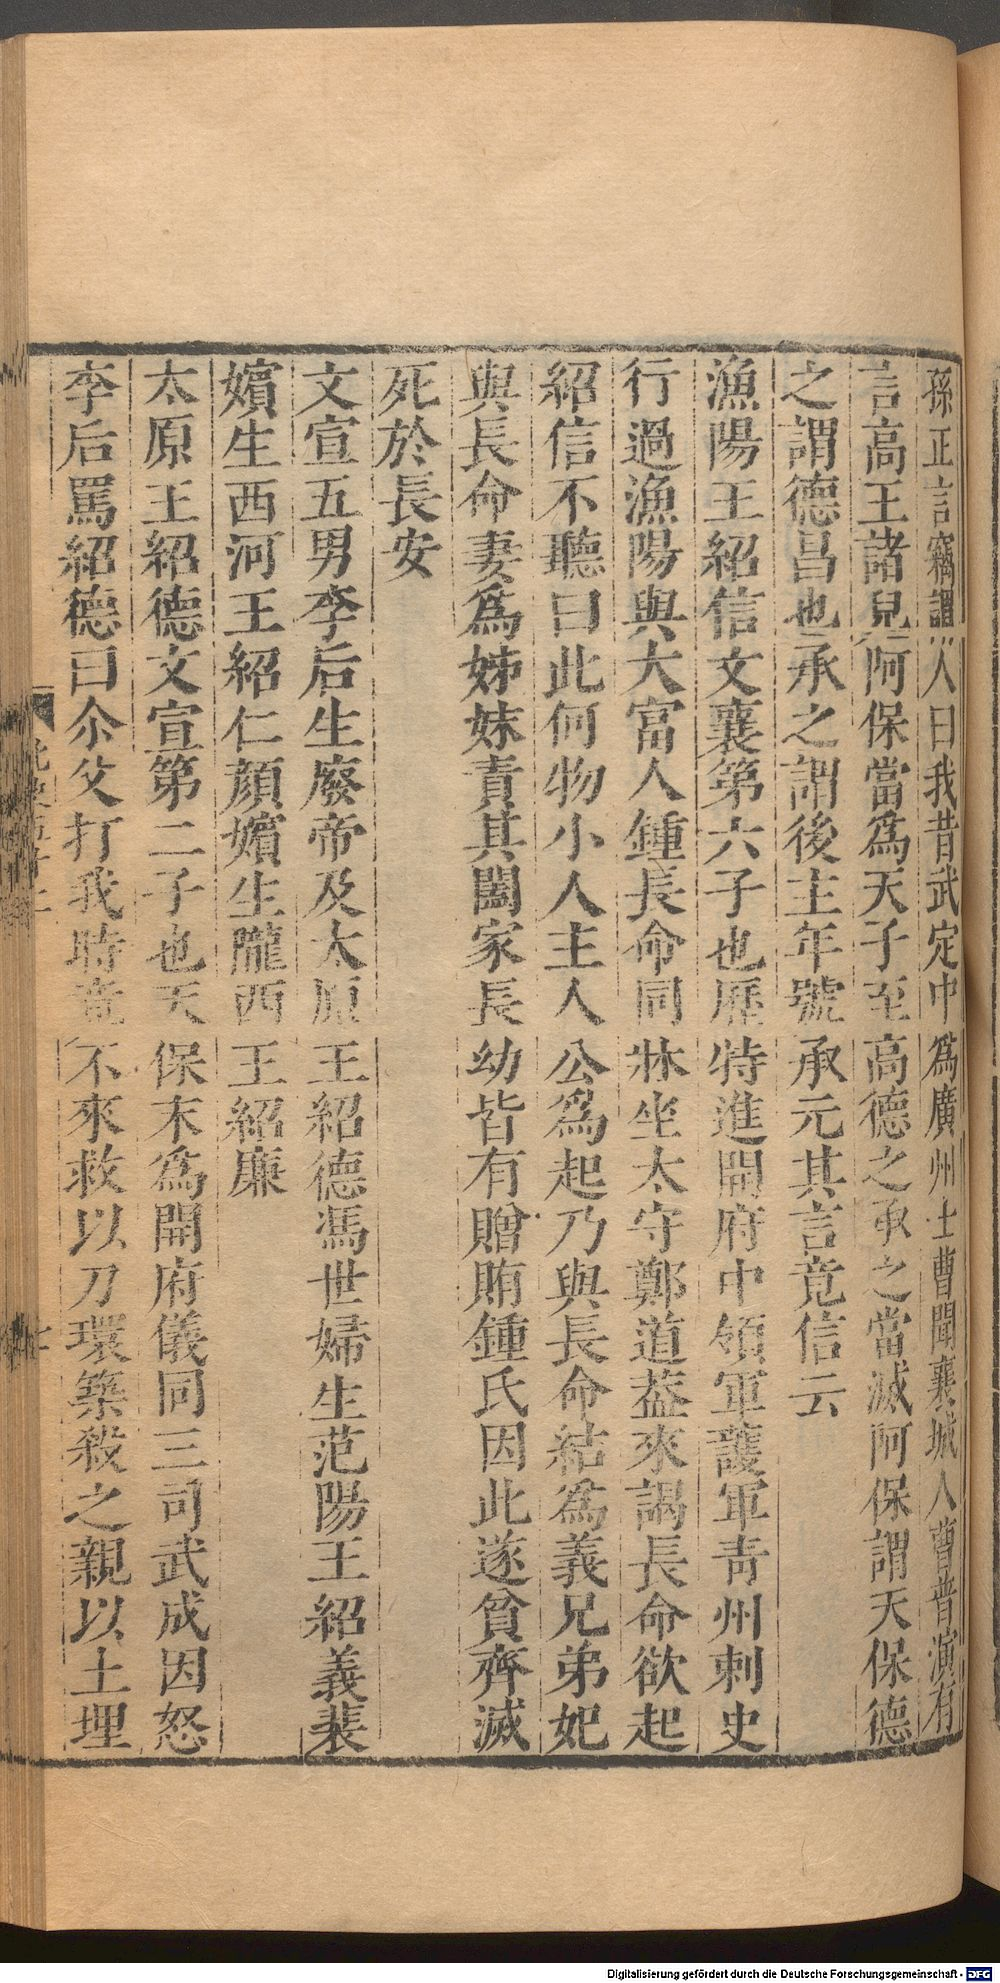 孫正言竊謂人曰我昔武定中為廣州士曹聞襄城人曹普演有
言高王諸兒阿保當為天子至高德之承之當滅阿保謂天保德
之謂德昌也承之謂後主年號承元其言竟信云
漁陽王紹信文襄第六子也歷特進開府中領軍護軍青州刺史
行過漁陽與大富人鍾長命同牀坐太守鄭道葢來謁長命欲起
紹信不聽曰此何物小人主人公為起乃與長命結為義兄弟妃
與長命妻為姊妹責其闔家長幼皆有贈賄鍾氏因此遂貧齊滅
死於長安
文宣五男李后生廢帝及太原王紹德馮世婦生范陽王紹義裴
嬪生西河王紹仁顏嬪生隴西王紹廉
太原王紹德文宣第二子也天保末為開府儀同三司武成因怒
李后罵紹德曰尒父打我時竟不來救以刀環築殺之親以土埋
Digitalisierung gefördert durch die Deutsche Forschungsgemeinschaft - DFG